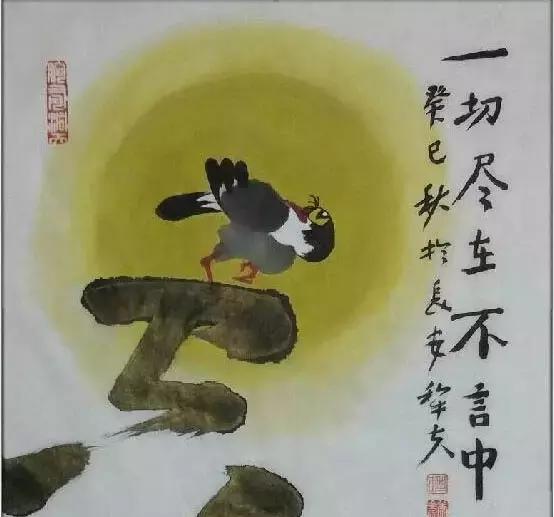 一切尽在不言中
癸巳秋於长安黎夫